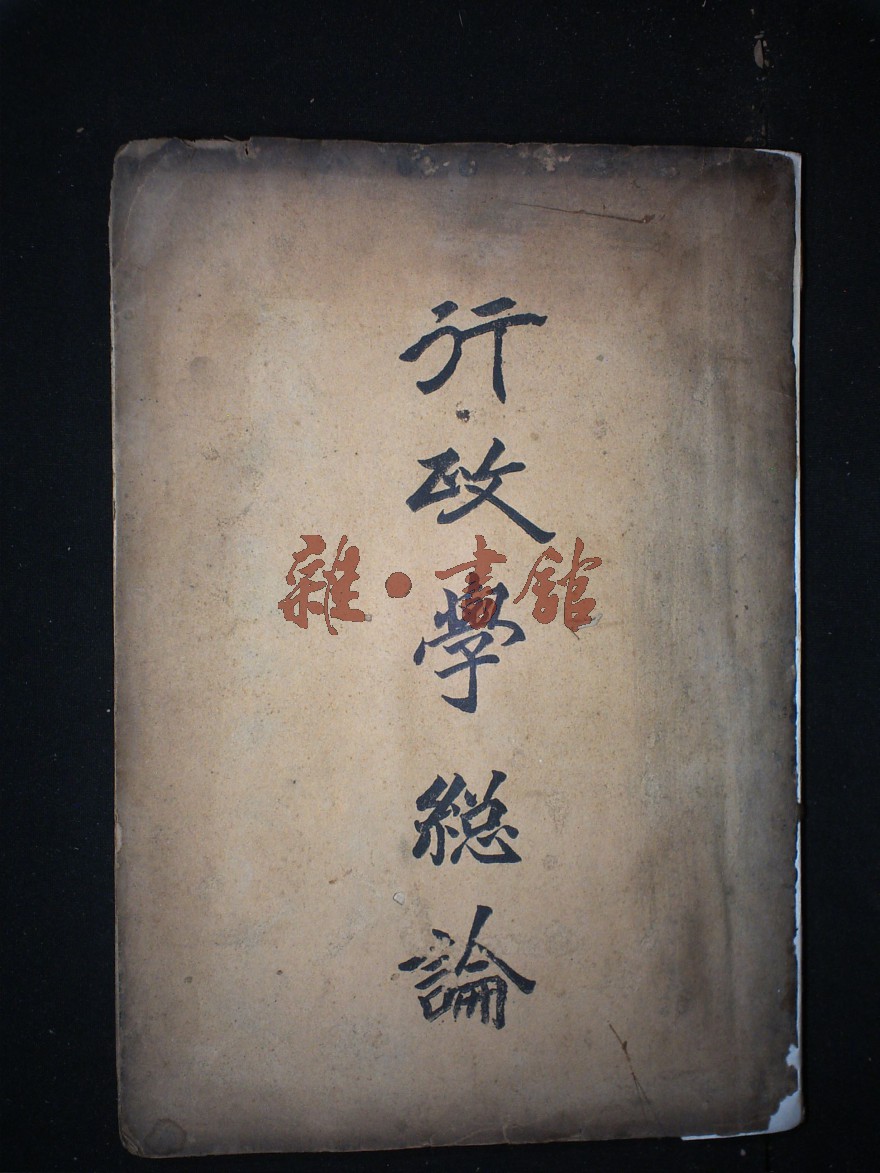 行政學総論
雜·書館